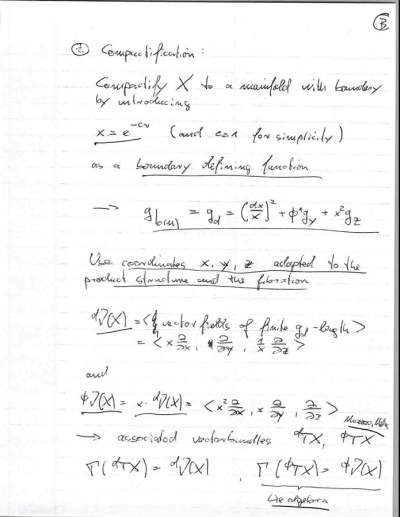 3
② Compactification :
Compactify X to a manifold with boundary
by introducing
x = e^{-cr} (and c=1 for simplicity)
as a boundary defining function
→ g_{b(cu)} = g_d = (dx/x)² + φ*g_Y + x² g_Z
Use coordinates x, y, z adapted to the
product structure and the fibration
ᵈV(X) = < vector fields of finite g_d-length >
= < x ∂/∂x, ∂/∂y, 1/x ∂/∂z >
and
ᶲV(X) = x · ᵈV(X) = < x² ∂/∂x, x ∂/∂y, ∂/∂z >
Mazzeo,
→ associated vectorbundles ᵈTX, ᶲTX
Γ(ᵈTX) = ᵈV(X) , Γ(ᶲTX) = ᶲV(X)
Lie algebra